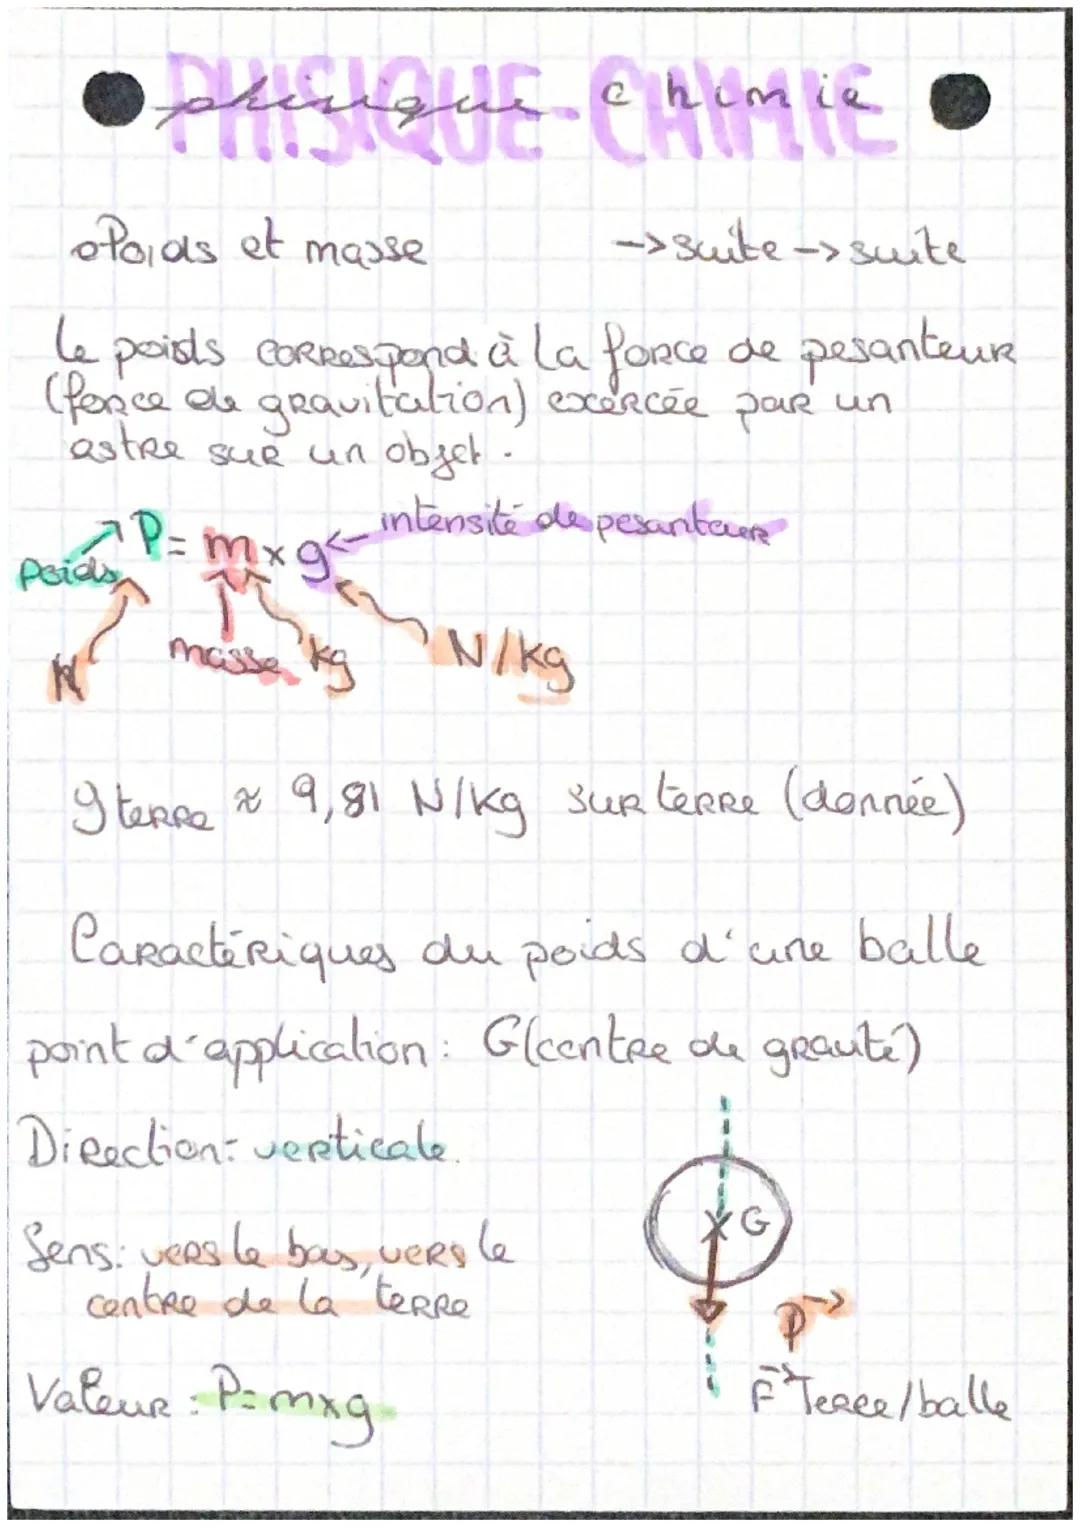 PHISIQUE-CHIMIE
phisique chimie
Poids et masse -> suite -> suite
le poids correspond à la force de pesanteur
(force de gravitation) exercée par un
astre sur un objet.
P = m x g intensité de pesanteur
poids
N masse kg N/kg
g terre ≈ 9,81 N/kg sur terre (donnée)
Caractériques du poids d'une balle
point d'application: G(centre de gravité)
Direction: verticale.
G
Sens: vers le bas, vers le
centre de la terre
P→
Valeur: P=mxg
F→ Terre/balle